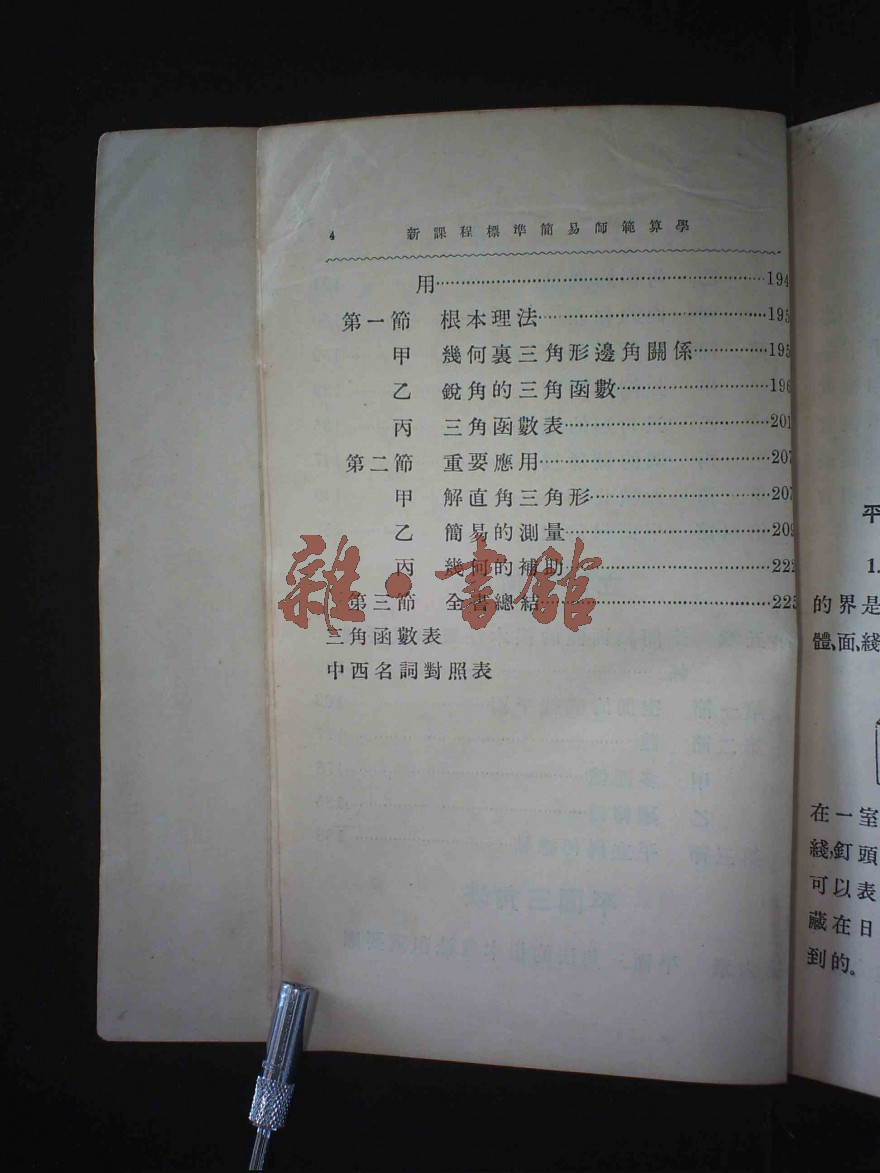 4 新課程標準簡易師範算學
用……194
第一節 根本理法……195
甲 幾何裏三角形邊角關係……195
乙 銳角的三角函數……196
丙 三角函數表……201
第二節 重要應用……207
甲 解直角三角形……207
乙 簡易的測量……209
丙 幾何的補助……222
第三節 全書總結……225
三角函數表
中西名詞對照表
雜·書館
平
1.
的界是
體、面、綫
在一室
綫,釘頭
可以表
藏在日
到的。